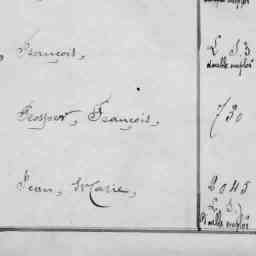 , François,
L S 3
double emploi
Prosper, François,
730
Jean, Marie,
2045
L S
double emploi